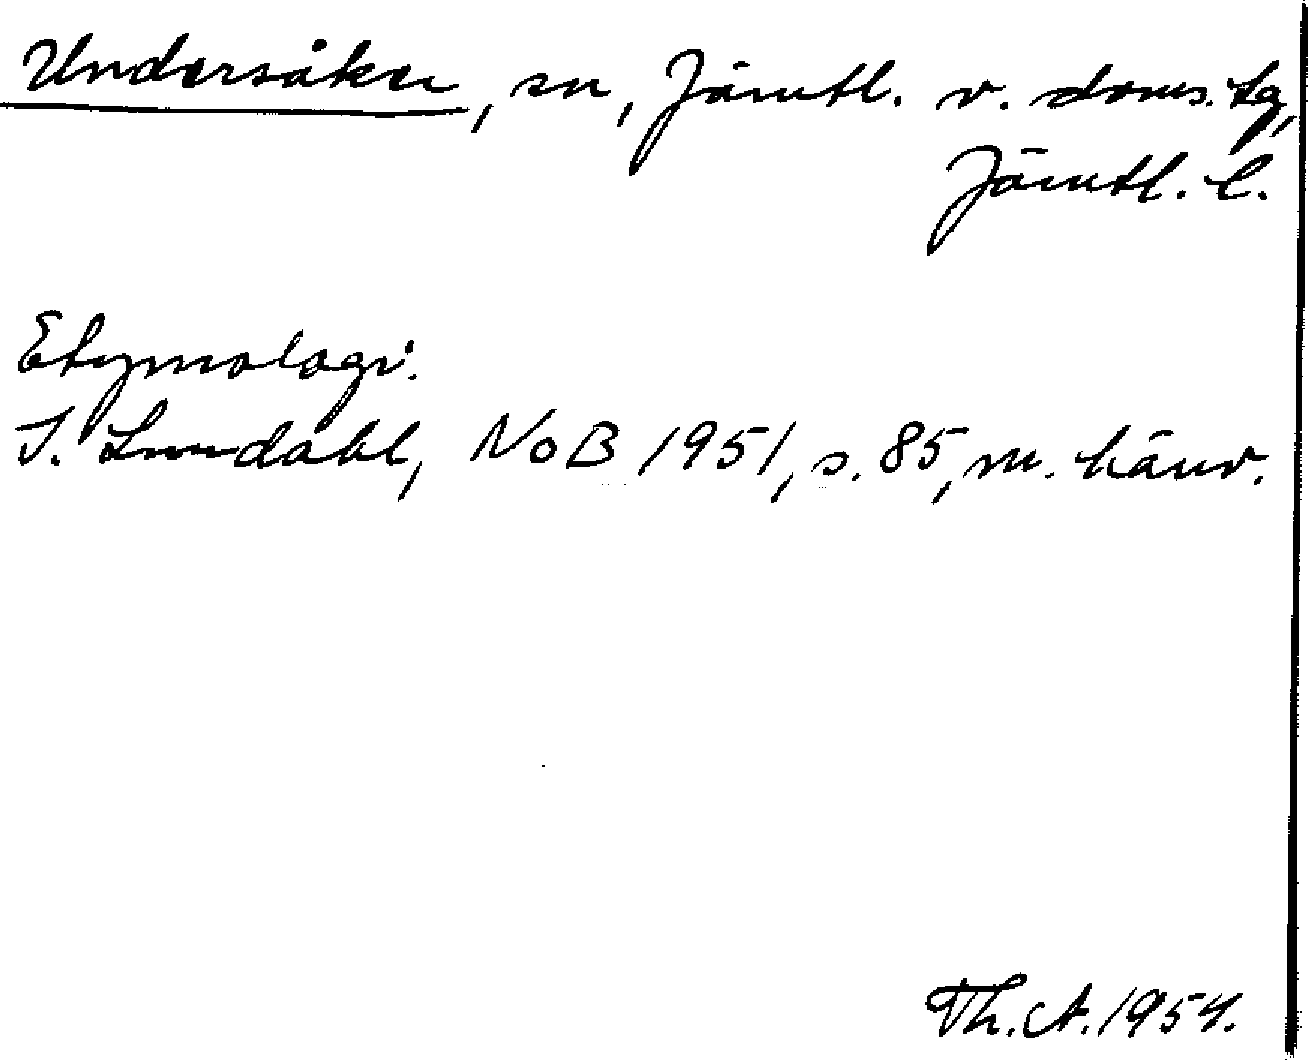 Undersåker, sn, Jämtl. v. doms. tg,
Jämtl. l.
Etymologi.
I. Lundahl, NoB 1951, s. 85, m. hänv.
Th. A. 1954.